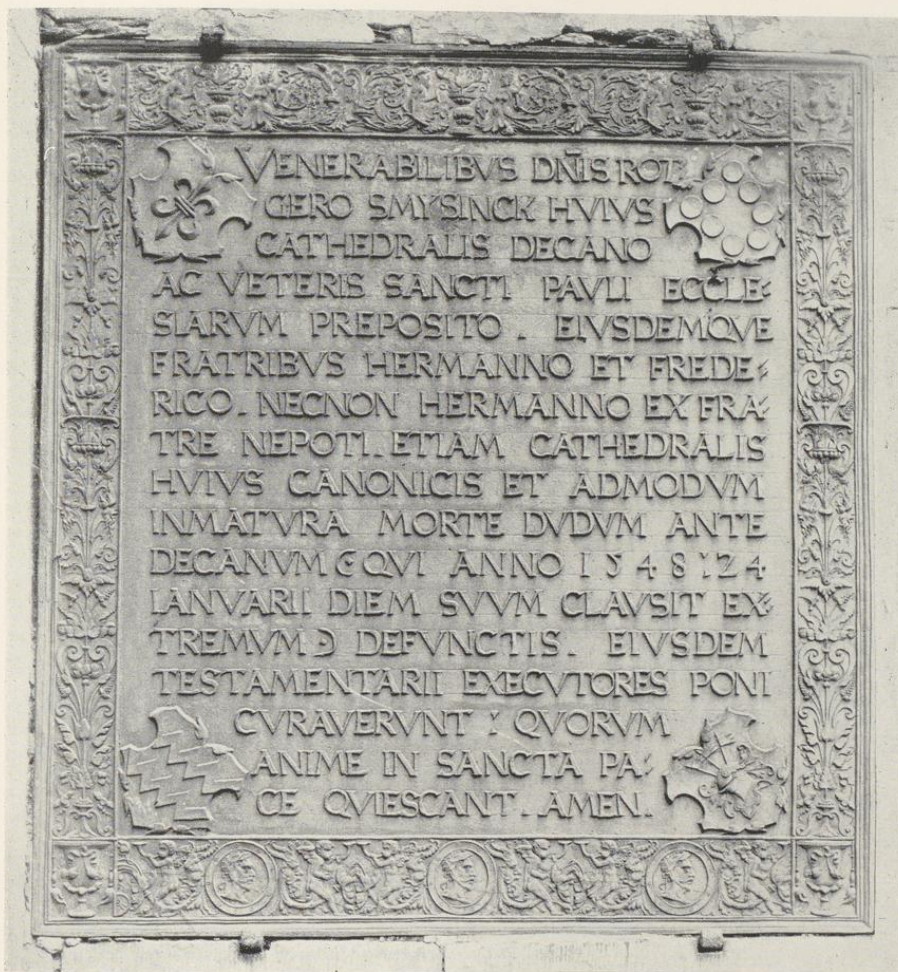 VENERABILIBVS DN̄IS ROT
GERO SMYSINCK HVIVS
CATHEDRALIS DECANO
AC VETERIS SANCTI PAVLI ECCLE:
SIARVM PREPOSITO . EIVSDEMQVE
FRATRIBVS HERMANNO ET FREDE:
RICO . NECNON HERMANNO EX FRA:
TRE NEPOTI . ETIAM CATHEDRALIS
HVIVS CANONICIS ET ADMODVM
INMATVRA MORTE DVDVM ANTE
DECANVM ( QVI ANNO 1548 : 24
IANVARII DIEM SVVM CLAVSIT EX:
TREMVM ) DEFVNCTIS . EIVSDEM
TESTAMENTARII EXECVTORES PONI
CVRAVERVNT : QVORVM
ANIME IN SANCTA PA:
CE QVIESCANT . AMEN .